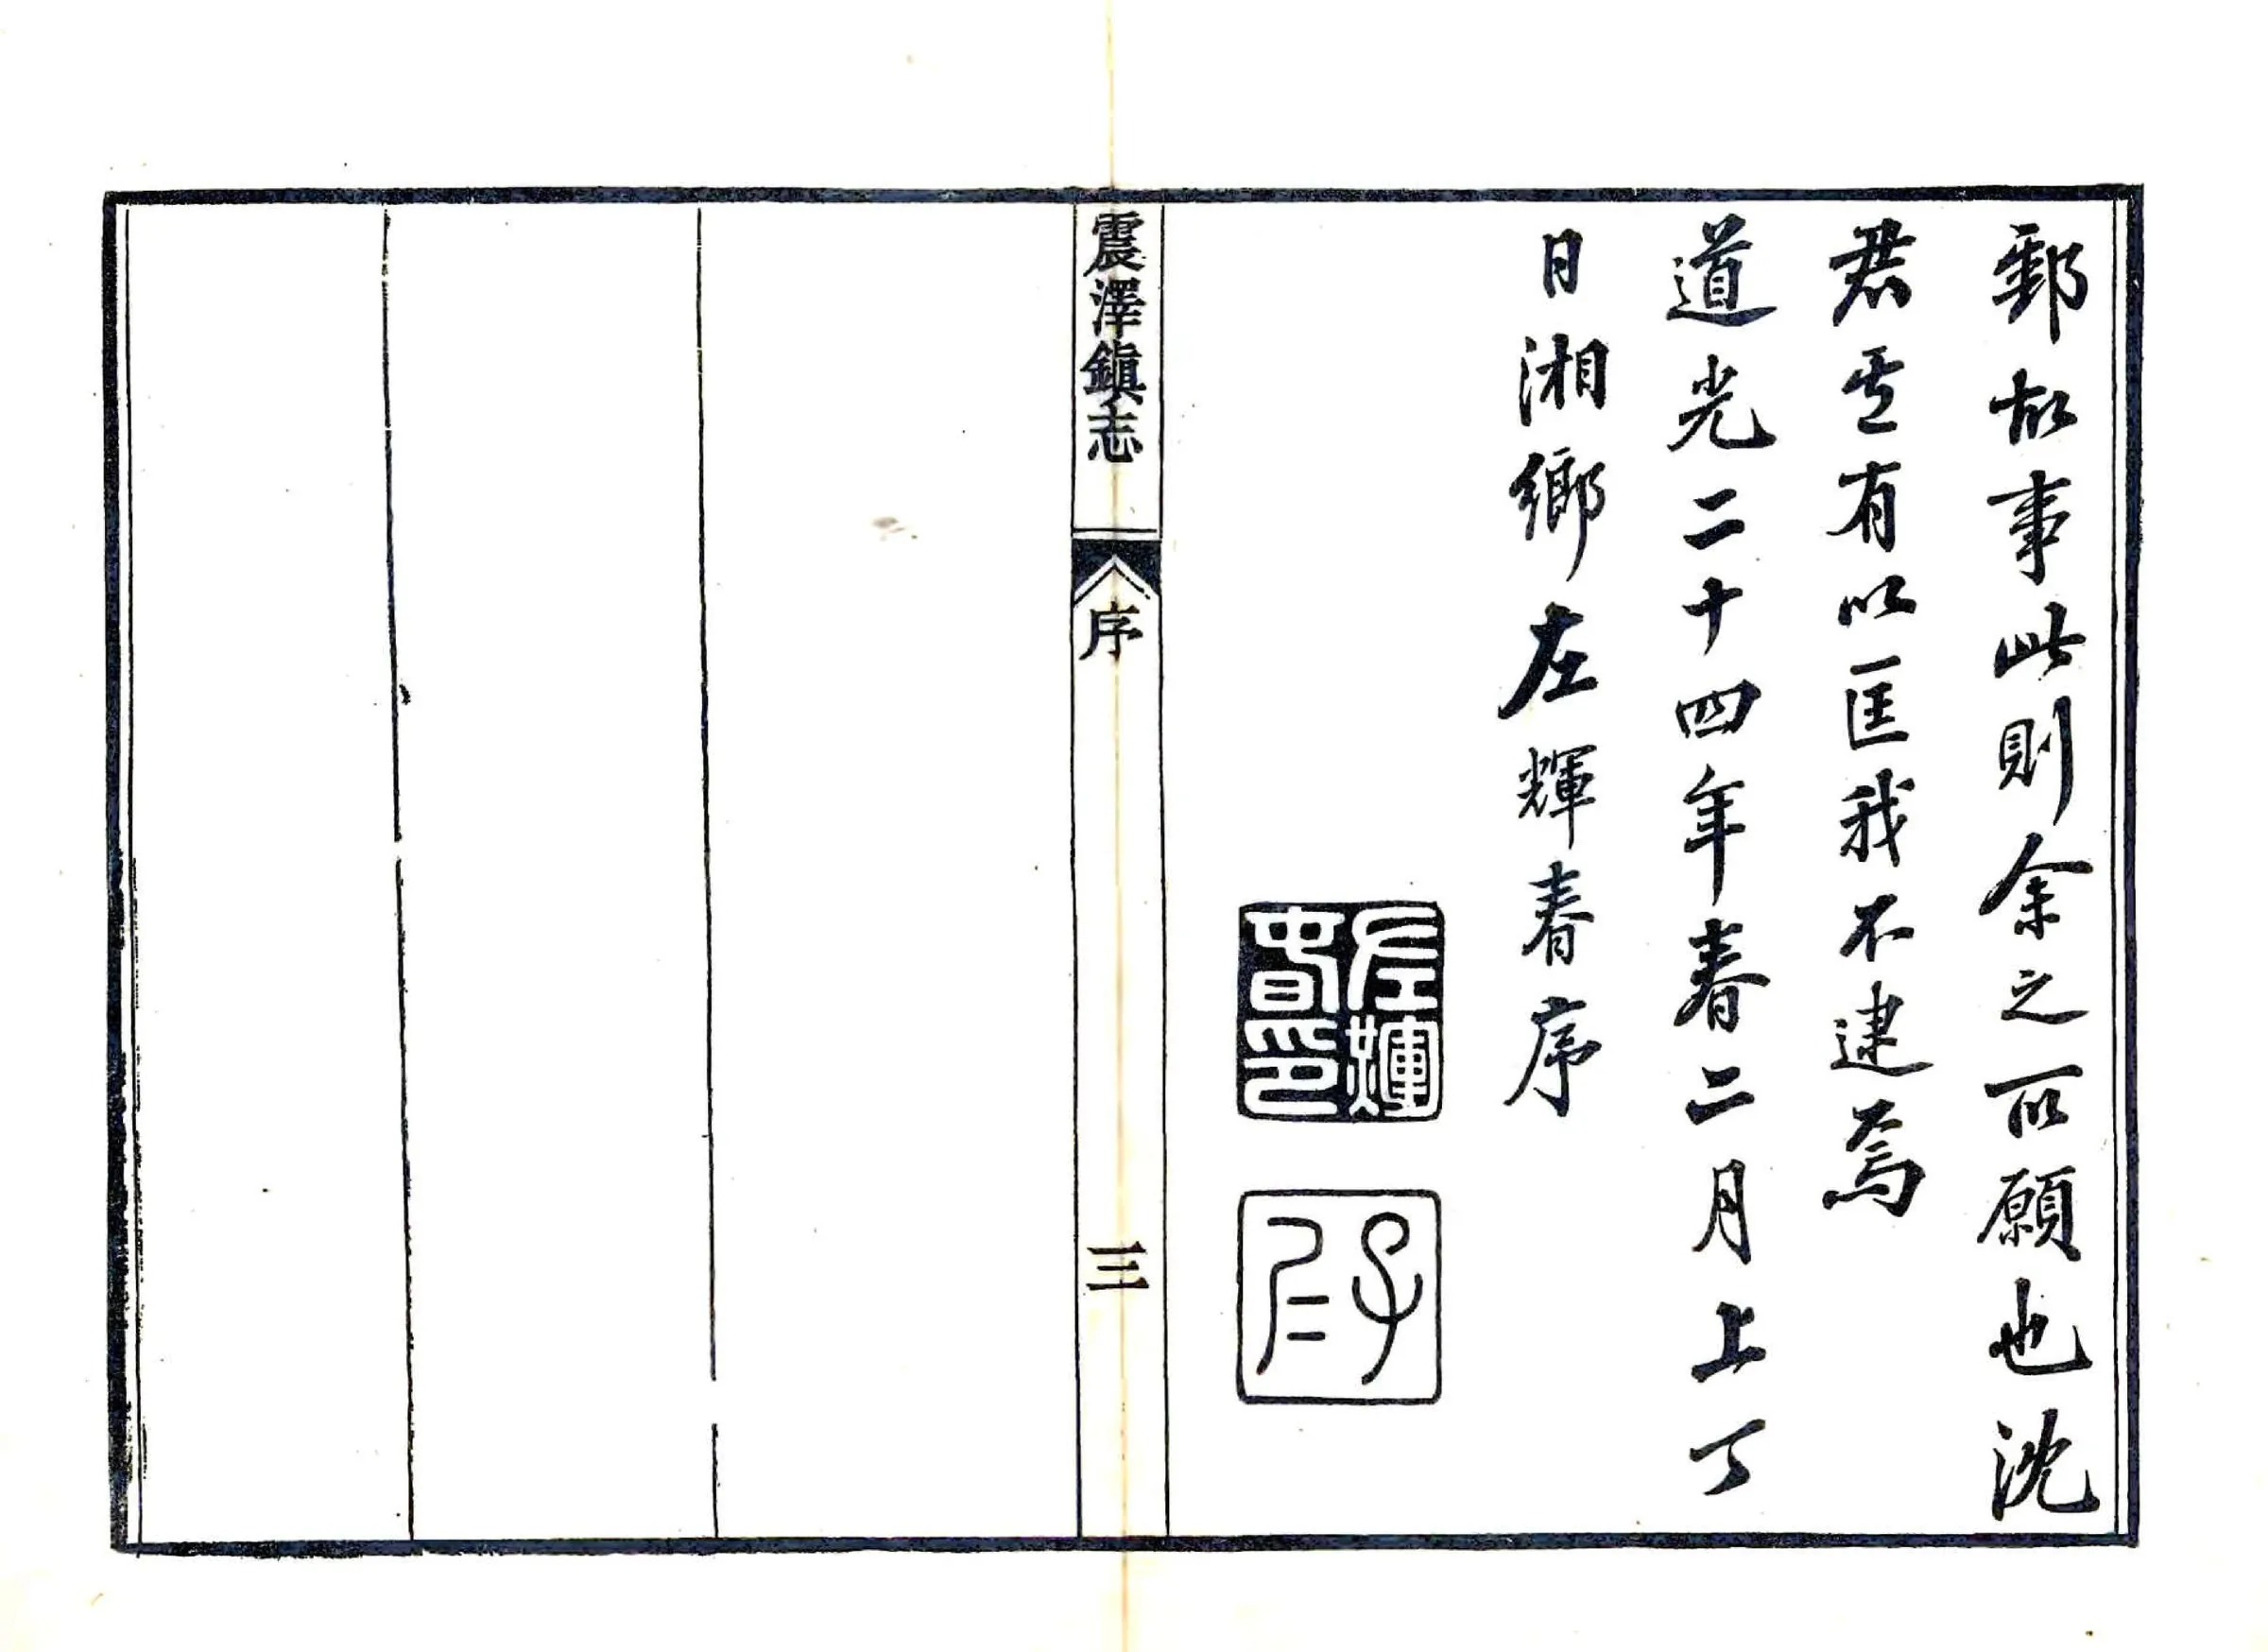 郵故事此則余之所願也沈
君其有以匡我不逮焉
道光二十四年春二月上丁
日湘鄉左輝春序
左輝
春印
子仁
震澤鎮志
序
三